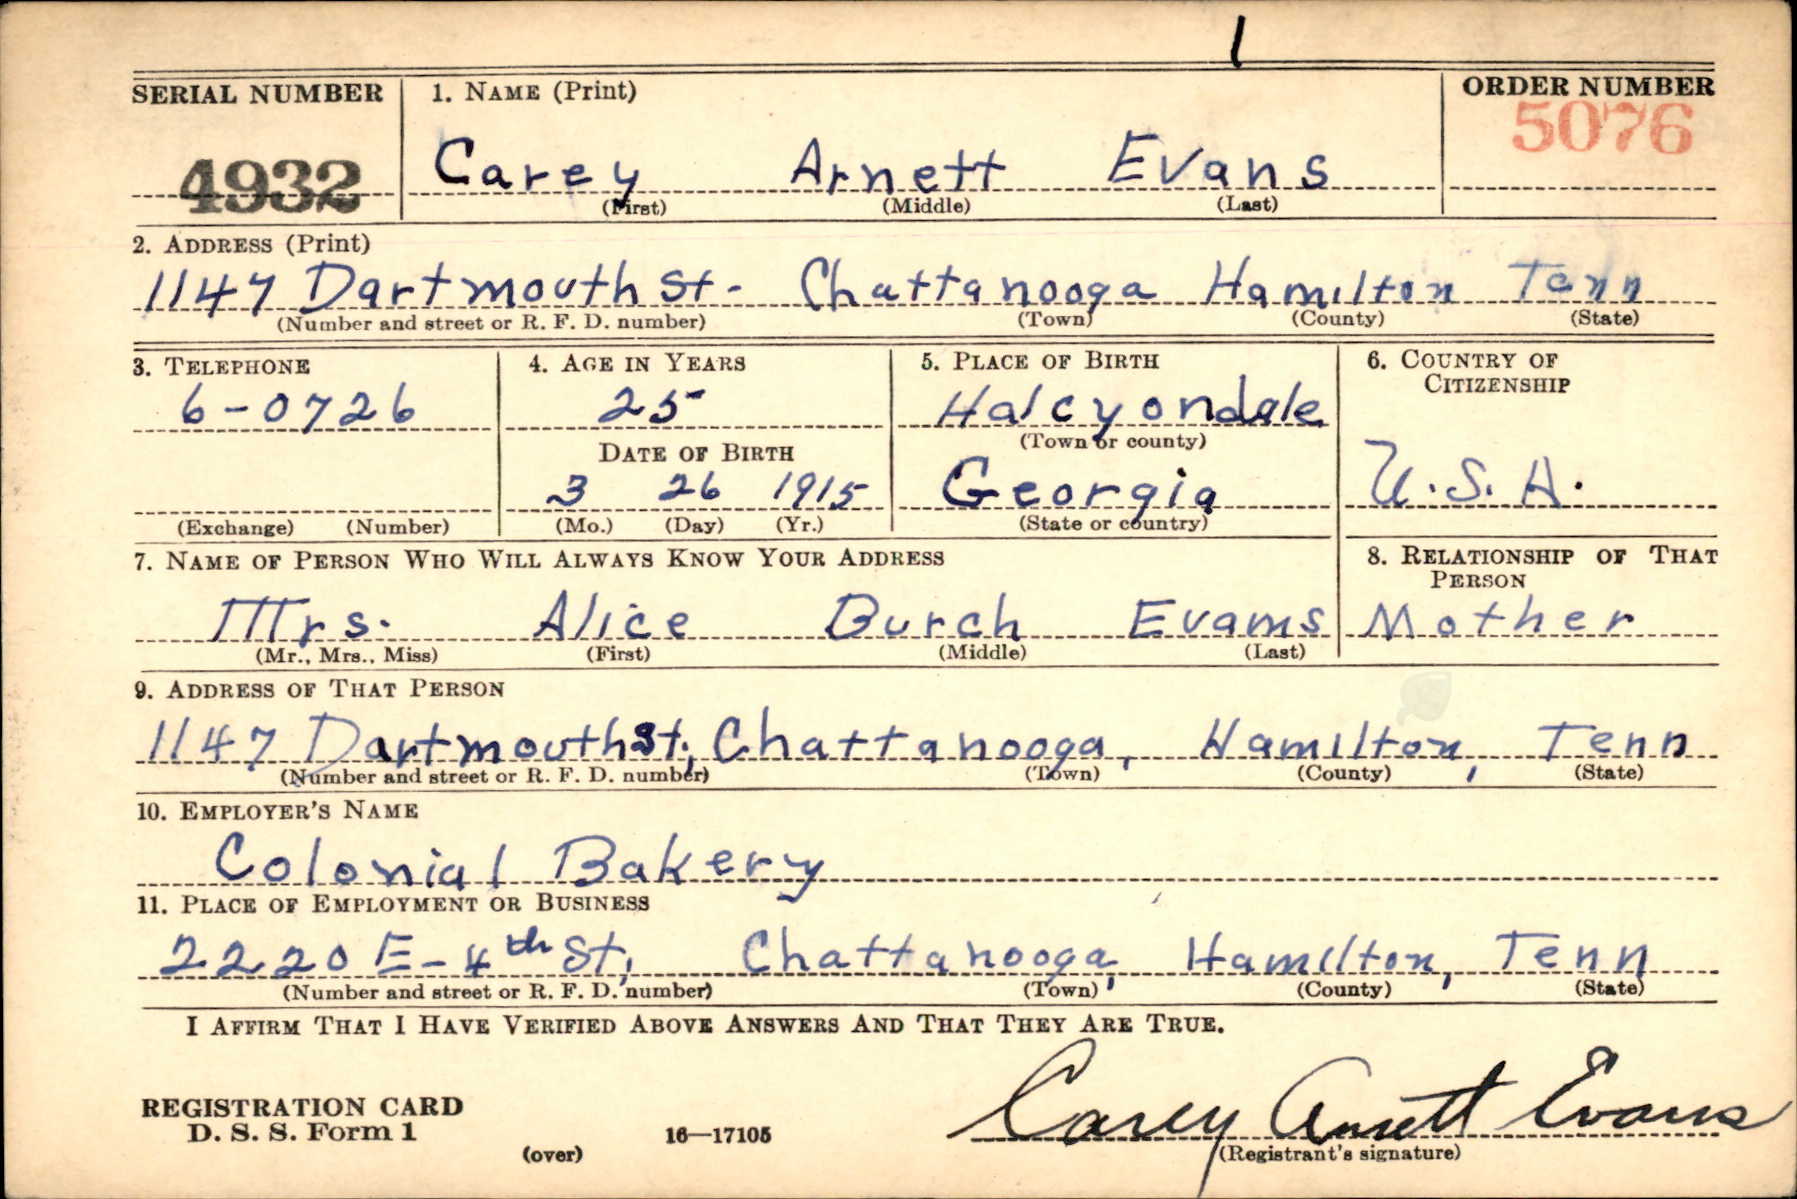 1
SERIAL NUMBER 1. NAME (Print) ORDER NUMBER
5076
4932 Carey Arnett Evans
(First) (Middle) (Last)
2. ADDRESS (Print)
1147 Dartmouth St- Chattanooga Hamilton Tenn
(Number and street or R. F. D. number) (Town) (County) (State)
3. TELEPHONE 4. AGE IN YEARS 5. PLACE OF BIRTH 6. COUNTRY OF CITIZENSHIP
6-0726 25 Halcyondale
(Town or county)
DATE OF BIRTH
3 26 1915 Georgia U.S.A.
(Exchange) (Number) (Mo.) (Day) (Yr.) (State or country)
7. NAME OF PERSON WHO WILL ALWAYS KNOW YOUR ADDRESS 8. RELATIONSHIP OF THAT PERSON
Mrs. Alice Burch Evans Mother
(Mr., Mrs., Miss) (First) (Middle) (Last)
9. ADDRESS OF THAT PERSON
1147 Dartmouth St, Chattanooga, Hamilton, Tenn
(Number and street or R. F. D. number) (Town) (County) (State)
10. EMPLOYER'S NAME
Colonial Bakery
11. PLACE OF EMPLOYMENT OR BUSINESS
2220 E-4th St, Chattanooga, Hamilton, Tenn
(Number and street or R. F. D. number) (Town) (County) (State)
I AFFIRM THAT I HAVE VERIFIED ABOVE ANSWERS AND THAT THEY ARE TRUE.
REGISTRATION CARD
D. S. S. Form 1 16—17105 Carey Arnett Evans
(over) (Registrant's signature)